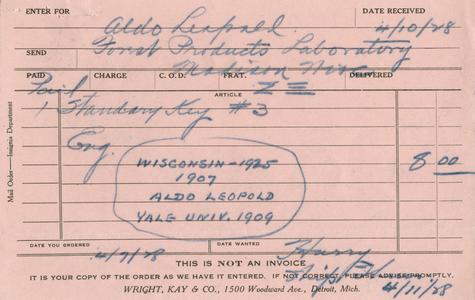 ENTER FOR
DATE RECEIVED
Aldo Leopold
4/10/28
SEND
Forest Products Laboratory
Madison Wis
PAID
CHARGE
C. O. D.
FRAT.
DELIVERED
Paid
ARTICLE
Σ Ξ
1 Standard Key #3
Eng.
8 00
WISCONSIN - 1925
1907
ALDO LEOPOLD
YALE UNIV. 1909
Mail Order — Insignia Department
DATE YOU ORDERED
4/9/28
DATE WANTED
Hurry
THIS IS NOT AN INVOICE
IT IS YOUR COPY OF THE ORDER AS WE HAVE IT ENTERED. IF NOT CORRECT, PLEASE ADVISE PROMPTLY.
4/11/28
WRIGHT, KAY & CO., 1500 Woodward Ave., Detroit, Mich.